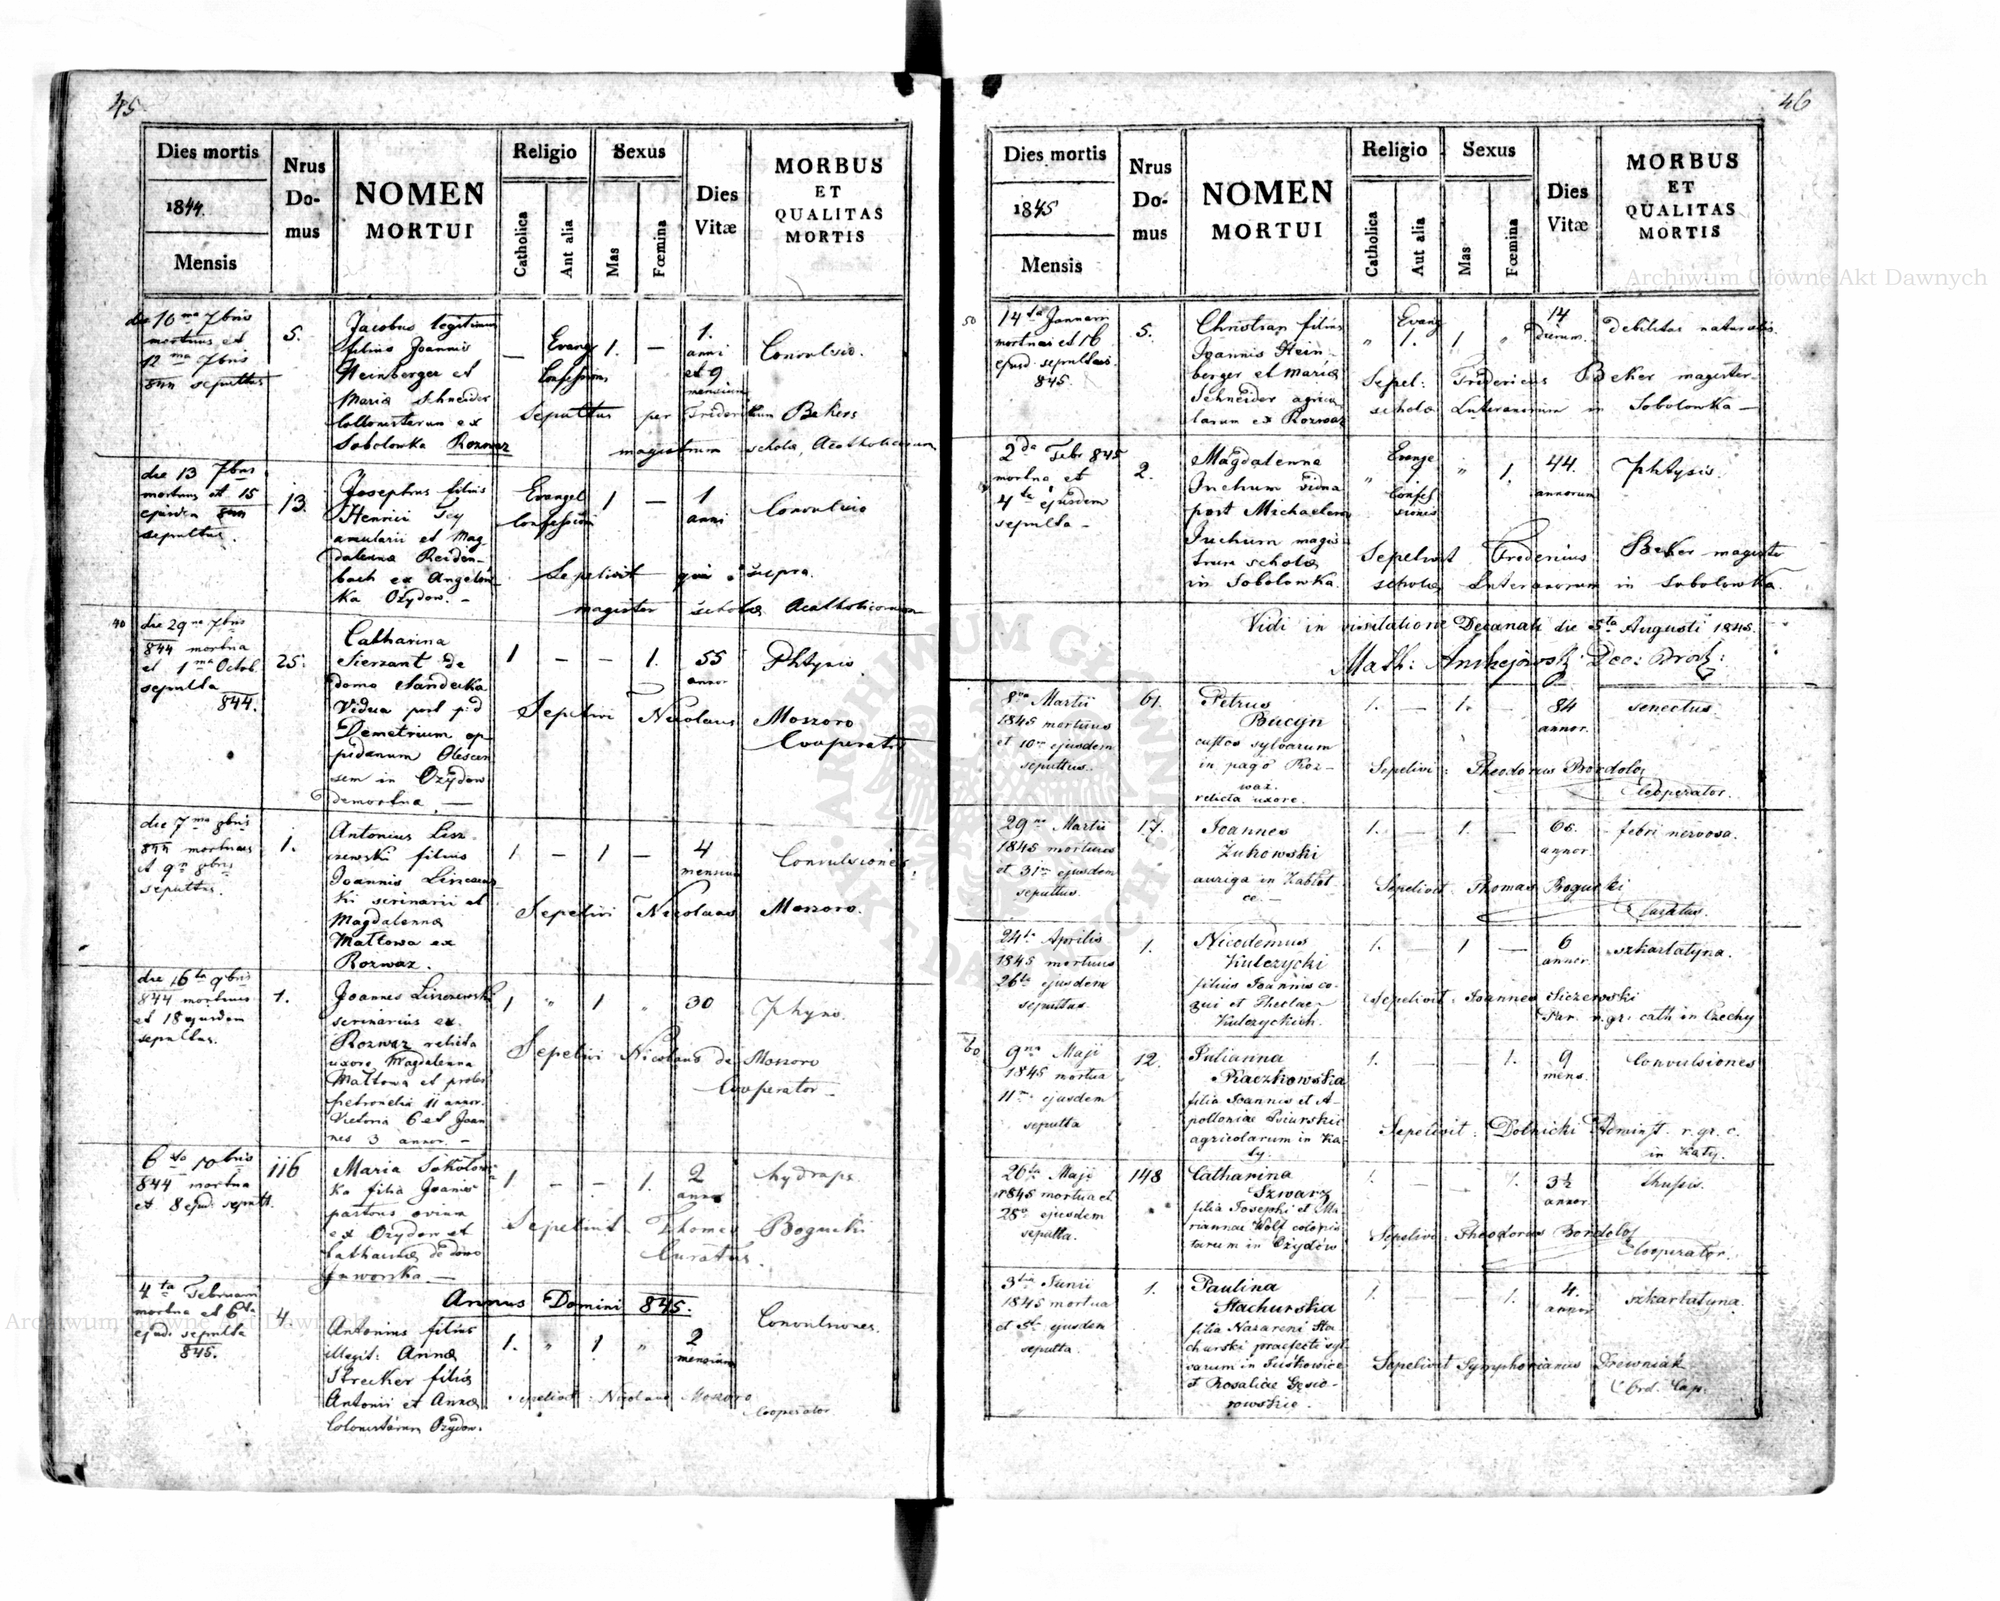 45
Dies mortis
1844.
Mensis
Nrus
Do-
mus
NOMEN
MORTUI
Religio
Catholica
Aut alia
Sexus
Mas
Fœmina
Dies
Vitæ
MORBUS
ET
QUALITAS
MORTIS
die 10 ma 7bris
mortuus et
12 ma 7bris
844 sepultus
5.
Jacobus legitimus
filius Joannis
Heinberger et
Maria Schneider
Collonistarum ex
Sobolowka Rozwaz
— Evang 1. —
Confessionis
1.
anni
et 9
mensium
Convulsio.
Sepultus per Fridericum Bekers
magistrum scholæ Acatholicorum
die 13 7bris
mortuus et 15
ejusdem 844
sepultus.
13.
Josephus filius
Henrici
et Mag
dalenna Reiden-
bach ex Angelow
ka Ozydow. -
Evangel 1 —
Confessioni
1
anni
Convulsio
Sepelivit qui supra.
magister scholæ Acatholicorum
40
die 29 na 7bris
844 mortua
et 1 ma Octob.
sepulta
844.
25.
Catharina
Sierzant de
domo Sandecka
Vidua post p:d
Demetrium op-
pidanum Olescen
sem in Ozydow
demortua —
1 — — 1.
55
annor
Phtysis
Sepelivi Nicolaus Moszoro
Cooperator
die 7 ma 8bris
844 mortuus
et 9 8bris
sepultus.
1.
Antonius Lisz-
zewski filius
Joannis Liszews
ki scrinarii et
Magdalenna
Mattowa ex
Rozwaz.
1. — 1 —
4
mensium
Convulsiones
Sepelivi Nicolaus Moszoro.
die 16 ta 9bris
844 mortuus
et 18 ejusdem
sepultus.
1.
Joannes Liszzewski
scrinarius ex.
Rozwaz relicta
uxore Magdalenna
Mattowa et proles
petronela 11 annor.
Victoria 6 et Joan
nes 3 annor. -
1 " 1 "
30
Phtysis.
Sepelivi Nicolaus de Moszoro
Cooperator —
6 ta 10bris
844 mortua
et 8 ejusd: sepult.
116
Maria Sokolows
ka filia Joannis
pastoris ovium
ex Ozydow et
Catharina de domo
Jaworska. —
1 — — 1.
2
annor
hydrops.
Sepelivit Thomas Bogucki
Curatus.
Annus Domini 845.
4 ta Februarii
mortua et 6 ta
ejusd: sepulta
845.
4
Antonius filius
illegit: Anna
Strecker filia
Antonii et Anna
Colonistarum Ozydow.
1. " 1 "
2
mensium
Convulsiones.
Sepelivit: Nicolaus Moszoro
Cooperator
46
Dies mortis
1845
Mensis
Nrus
Do-
mus
NOMEN
MORTUI
Religio
Catholica
Aut alia
Sexus
Mas
Fœmina
Dies
Vitæ
MORBUS
ET
QUALITAS
MORTIS
50
14 ta Januarii
mortuus et 16
ejusd: sepultus
845.
5.
Christian filius
Joannis Hein-
berger et Maria
Schneider agrico
larum ex Rozwaz
" Evang 1. 1 "
14
dierum.
debilitas naturalis.
Sepel: Fridericus Beker magister-
schola Luteranorum in Sobolowka —
2 da Febr 845
mortua et
4 ta ejusdem
sepulta —
2.
Magdalenna
Juchum vidua
post Michaelem
Juchum magis
trum schola
in Sobolowka.
" Evange 1 " 1.
Confes
siones
44.
annorum
Phtysis.
Sepelivit Fredericus Beker magister
scholæ Luteranorum in Sobolowka.
Vidi in visitatione Decanali die 5 ta Augusti 1845.
Math: Andrejowski Dec: Brod:
8va Martii
1845 mortuus
et 10 ejusdem
sepultus.
61.
Petrus
Bucyn
custos sylvarum
in pago Roz-
waz.
relicta uxore.
1. — 1. —
84
annor.
senectus.
Sepelivi: Theodorus Bordolo
Cooperator.
29 na Martii
1845 mortuus
et 31 ma ejusdem
sepultus.
17.
Joannes
Zukowski
auriga in Zablot-
ce. —
1. — 1. —
66.
annor.
febri nervosa.
Sepelivit Thomas Bogucki
Curatus.
24ta Aprilis
1845 mortuus
26ta ejusdem
sepultus.
1.
Nicodemus
Kulczycki
filius Joannis co-
qui et Theclae
Kulczyckich.
1. — 1 —
6
annor.
szkarlatyna.
Sepelivit: Joannes Siczewski
Par. r. gr. cath in Czechy
60
9na Maji
1845 mortua
11ma ejusdem
sepulta
12.
Julianna
Kaczkowska
filia Joannis et A-
polloniae
agricolarum in Ka-
ty.
1. — — 1.
9
mens.
Convulsiones
Sepelivit: Dolnicki Administ. r. gr. c.
in Katy.
26ta Maji
1845 mortua et
28a ejusdem
sepulta.
148
Catharina
Szwarz
filia Josephi et Ma-
riannae Wolf colonis
tarum in Ozydow
1. — — 1.
3½
annor.
thusis.
Sepelivi: Theodorus Bordolo
Cooperator.
3tia Junii
1845 mortua
et 5ta ejusdem
sepulta.
1.
Paulina
Stachurska
filia Nazareni Sta
churski praefecti syl
varum in
et Rosaliae Gesio-
rowskie.
1. — — 1.
4.
annor
szkarlatyna.
Sepelivit Symphorianus Drewniak
Ord. Cap.
Archiwum Główne Akt Dawnych
Archiwum Główne Akt Dawnych
ARCHIWUM GŁÓWNE AKT DAWNYCH